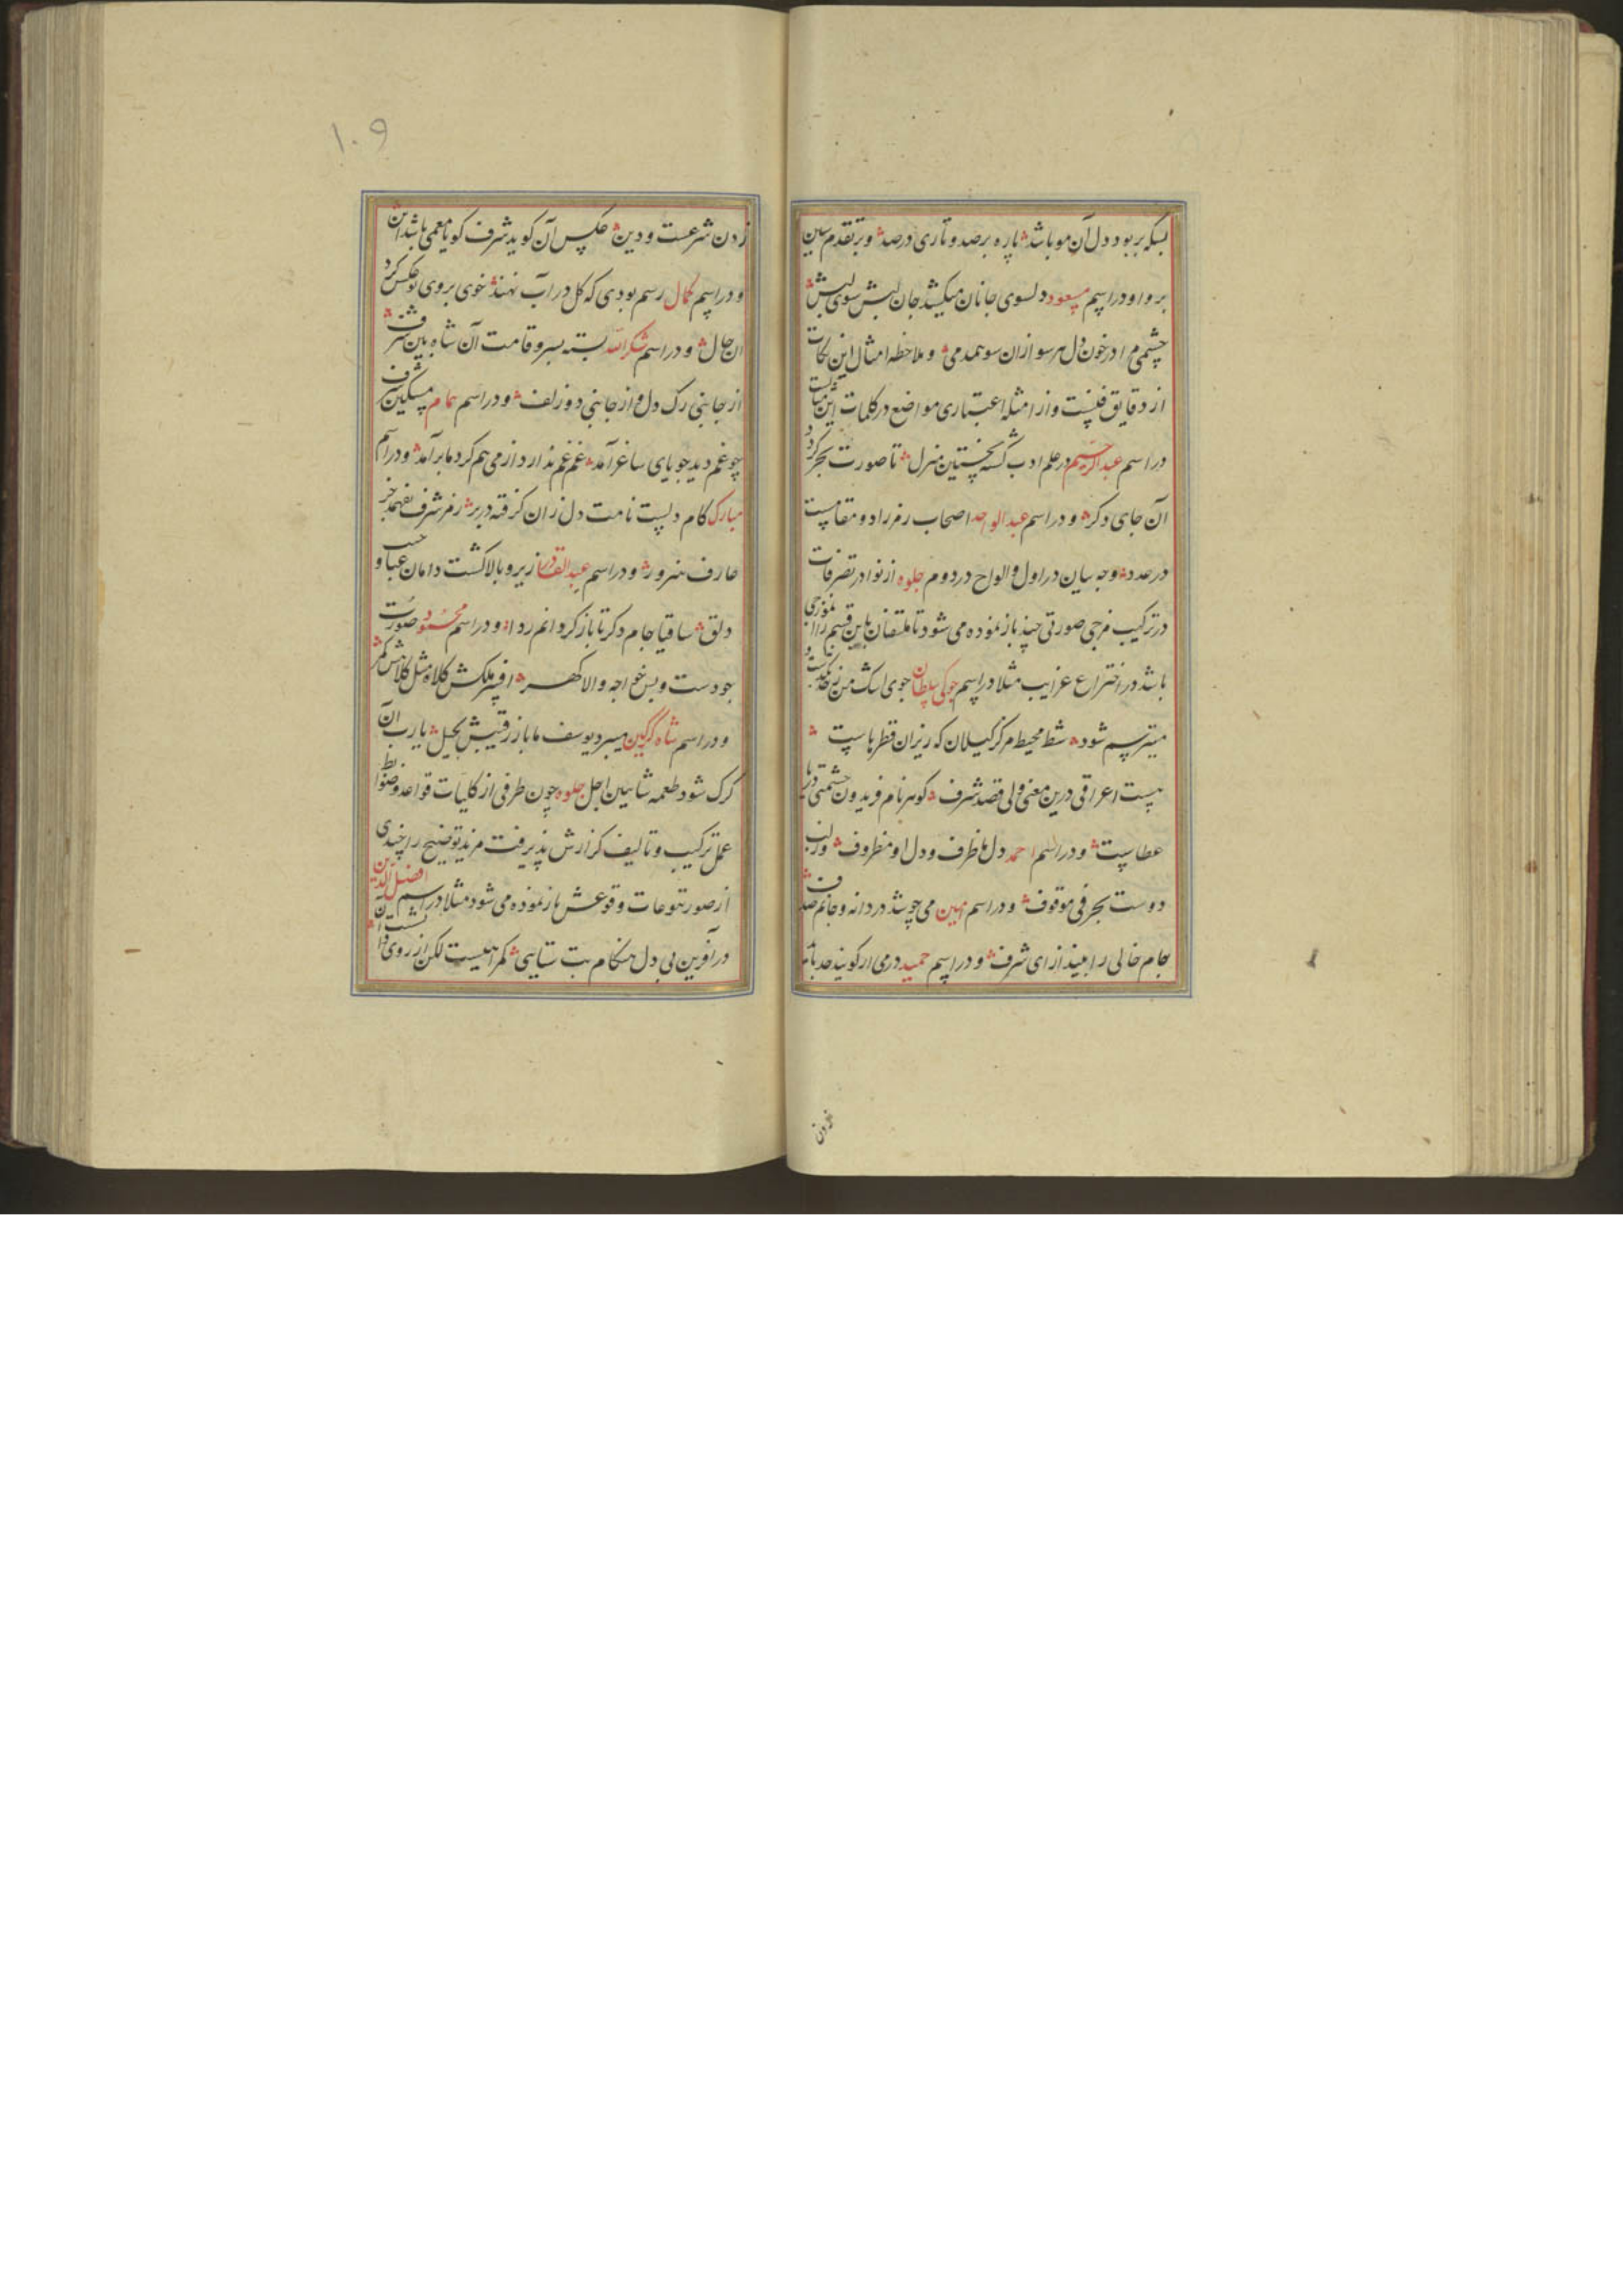 بسکه بربود دل آن مو باشد پاره بر صد و تاری در صد و بر تقدم سین
بر واو در اسم مسعود دلسوی جانان میکشد جان لبش سوی لبش
چشمی مرا در خون دل هر سو ازان سو همدمی و ملاحظه امثال این نکات
از دقایق فنست و از امثله اعتباری مواضع در کلمات این
در اسم عبدالرحیم در علم ادب گشته نخستین منزل تا صورت بحر کرد
آن جای دکر و در اسم عبد الواحد اصحاب رمز راد و مقامست
در عدد وجه بیان در اول و الواح در دوم جلوه از نوادر تصرفات
در ترکیب مزجی صورتی چند باز نموده می شود تا ملتفتان باین قسم را انموذجی
باشد در اختراع غرایب مثلا در اسم جوکی سلطان جوی اشک من
مبترسم شود شط محیط مرکز کیلان که ریزان قطرهاست
نیست اعراقی درین معنی ولی قصد شرف کوهر نام فریدون حشمتی دریا
عطاست و در اسم احمد دل ما ظرف و دل او مظروف و زلب
دوست بحرفی موقوف و در اسم امین می چو شد دردانه و جانم صدف
جام خالی را مبیند از ای شرف و در اسم حمید در می ار کویند حد باشد
زدن
۱۰۹
زدن شرعست و دین عکس آن کوید شرف کو با معمی باشد این
و در اسم کمال رسم بودی که کل در آب نهند خوی بروی تو عکس کرد
ان حال و در اسم شکرالله بسته بسر و قامت آن شاه بین شرف
از جانبی رک دل و از جانبی دو زلف و در اسم همام مسکین شرف
چو غم دید جویای ساغر آمد غم غم ندارد از می هم کرد ما برآمد و در اسم
مبارک کام دلست نامت دل زان کرفته در بر رمز شرف نفهمد جز
عارف هنرور و در اسم عبدالقادر زیر و بالا کشت دامان عبا و جیب
دلق ساقیا جام دکر تا باز کردانم ردا و در اسم محمود صورت
جودست و بس خواجه والا کهر افسر ملکش کلاه مثل کلاهش کمر
و در اسم شاه کرکین میبرد یوسف ما باز رقیبش بحیل یارب آن
کرک شود طعمه شاهین اجل جلوه چون طرفی از کلیات قواعد و ضوابط
عمل ترکیب و تالیف کزارش پذیرفت مزید توضیح را چندی
از صور تنوعات وقوعش باز نموده می شود مثلا در اسم افضل الدین
در آفرین بی دل هنکام بت ستایی کمراهیست لکن از روی